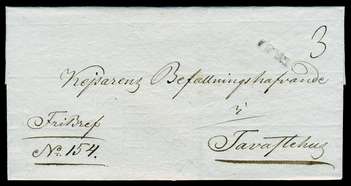 3
Kejsarens Befallningshafvande
i
FriBref
Tavastehus
No. 154.